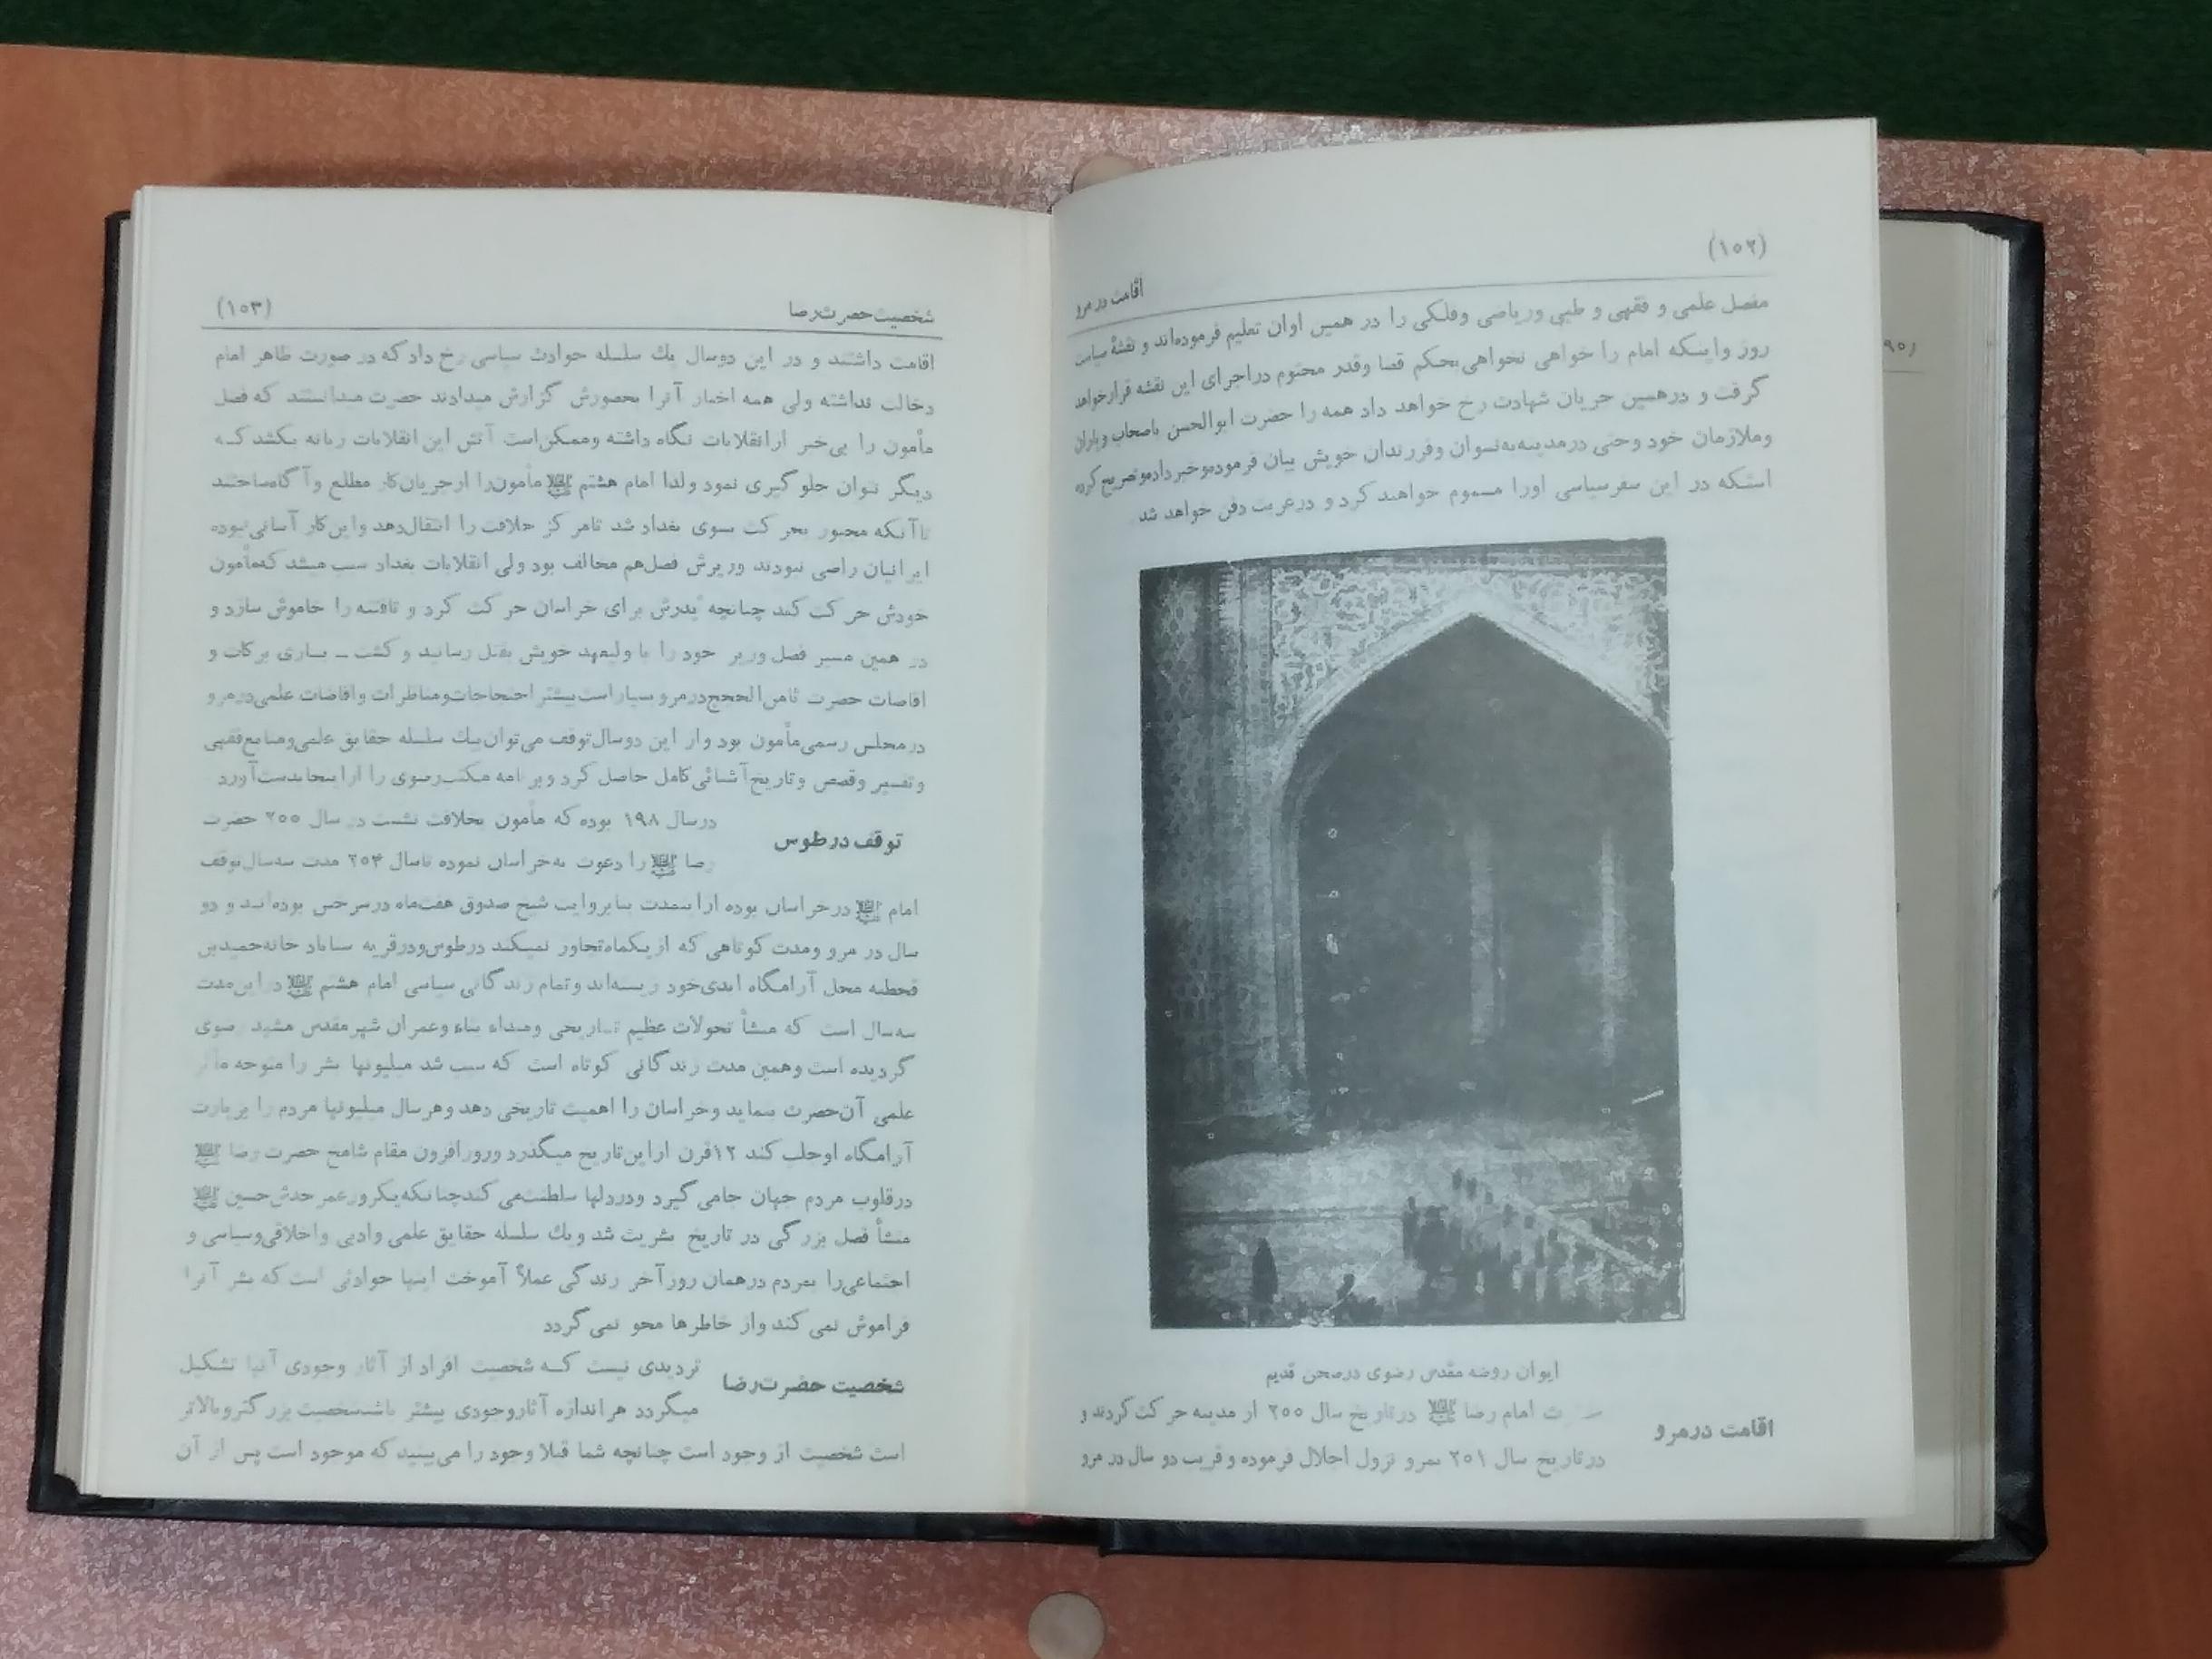 (۱۰۲)
اقامت در مرو
مفصل علمی و فقهی و طبی وریاضی وفلکی را در همین اوان تعلیم فرموده‌اند و نقشهٔ سیاست
روز واینکه امام را خواهی نخواهی بحکم قضا وقدر محتوم دراجرای این نقشه قرارخواهد
گرفت و درهمین جریان شهادت رخ خواهد داد همه را حضرت ابوالحسن باصحاب ویاران
وملازمان خود وحتی درمدینه‌به‌نسوان وفرزندان خویش بیان فرموده‌وخبرداده‌وتصریح‌کرده
استکه در این سفرسیاسی اورا مسموم خواهند کرد و درغربت دفن خواهد شد
ایوان روضه مقدس رضوی درصحن قدیم
اقامت درمرو
امام رضا علیه‌السلام درتاریخ سال ۲۰۰ از مدینه حرکت‌کردند و
درتاریخ سال ۲۰۱ بمرو نزول اجلال فرموده و قریب دو سال در مرو
شخصیت‌حضرت‌رضا
(۱۰۳)
اقامت داشتند و در این دوسال یك سلسله حوادث سیاسی رخ دادکه در صورت ظاهر امام
دخالت نداشته ولی همه اخبار آنرا بحضورش گزارش میدادند حضرت میدانستند که فضل
مأمون را بی‌خبر ازانقلابات نگاه داشته وممکن‌است آتش این‌انقلابات زبانه بکشد کـه
دیگر نتوان جلوگیری نمود ولذا امام هشتم علیه‌السلام مأمون‌را ازجریان‌کار مطلع وآگاه‌ساختند
تاآنکه مجبور بحرکت بسوی بغداد شد تامرکز خلافت را انتقال‌دهد واین‌کار آسانی‌نبوده
ایرانیان راضی نبودند وزیرش فضل‌هم مخالف بود ولی انقلابات بغداد سبب میشد که‌مأمون
خودش حرکت کند چنانچه پدرش برای خراسان حرکت کرد و تافتنه را خاموش سازد و
در همین مسیر فضل وزیر خود را با ولیعهد خویش بقتل رسانید و کشت ــ بساری برکات و
افاضات حضرت ثامن‌الحجج‌درمرو بسیاراست‌بیشتر احتجاجات‌ومناظرات وافاضات علمی‌درمرو
درمجلس رسمی‌مأمون بود واز این دوسال‌توقف می‌توان‌یك سلسله حقایق علمی‌ومنابع‌فقهی
وتفسیر وقصص وتاریخ‌آشنائی‌کامل حاصل کرد وبرنامه مکتب‌رضوی را ازاینجابدست‌آورد
توقف درطوس
درسال ۱۹۸ بوده که مأمون بخلافت نشست در سال ۲۰۰ حضرت
رضا علیه‌السلام را دعوت به‌خراسان نموده تاسال ۲۰۳ مدت سه‌سال‌توقف
امام علیه‌السلام درخراسان بوده ازاینمدت بنابروایت شیخ صدوق هفت‌ماه درسرخس بوده‌انـد و دو
سال در مرو ومدت کوتاهی که ازیکماه‌تجاوز نمیکند درطوس‌ودرقریه سناباد خانه‌حمیدبن
قحطبه محل آرامگاه ابدی‌خود زیسته‌اند وتمام زندگانی سیاسی امام هشتم علیه‌السلام دراین‌مدت
سه‌سال است که منشأ تحولات عظیم تـاریخی ومبداء بناء وعمران شهرمقدس مشهد رضوی
گردیده است وهمین مدت زندگانی کوتاه است که سبب شد میلیونها بشر را متوجه مآثر
علمی آن‌حضرت بنماید وخراسان را اهمیت تاریخی دهد وهرسال میلیونها مردم را بزیارت
آرامگاه اوجلب کند ۱۲قرن ازاین‌تاریخ میگذرد وروزافزون مقام شامخ حضرت رضا علیه‌السلام
درقلوب مردم جهان جامی گیرد ودردلها سلطنت‌می کندچنانکه‌یکروزعمر جدش‌حسین علیه‌السلام
منشأ فصل بزرگی در تاریخ بشریت شد ویك سلسله حقایق علمی وادبی واخلاقی‌وسیاسی و
اجتماعی‌را بمردم درهمان روزآخر زندگی عملاً آموخت اینها حوادثی است که بشر آنرا
فراموش نمی کند واز خاطرها محو نمی گردد
شخصیت حضرت‌رضا
تردیدی نیست کـه شخصیت افراد از آثار وجودی آنها تشکیل
میگردد هراندازه آثاروجودی بیشتر باشدشخصیت بزرگتروبالاتر
است شخصیت از وجود است چنانچه شما قبلا وجود را می‌بینید که موجود است پس از آن